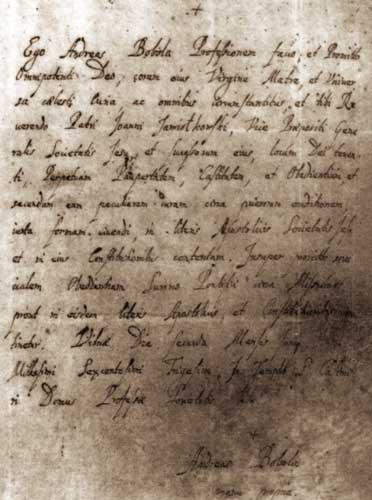 +
Ego Andreas Bobola Professionem facio, et Promitto
Omnipotenti Deo, coram eius Virgine Matre, et Univer
sa cælesti Curia ac omnibus circumstantibus, et tibi Re
verendo Patri Joanni Vice Præposito Gene
ralis Societatis Jesu, et Successorum eius, locum Dei tenen
ti, Perpetuam Paupertatem, Castitatem, et Obedientiam et
secundum eam peculiarem curam circa puerorum eruditionem
iuxta formam vivendi in literis Apostolicis Societatis Jesu
et in eius Constitutionibus contentam. Insuper promitto spe
cialem Obedientiam Summo Pontifici circa Missiones
prout in eisdem literis Apostolicis et Constitutionibus con
tinetur. Vilnæ Die secunda Mensis
Millesimi Sexcentesimi Trigesimi In Templo S. Casimi
ri Domus Professæ
+
Andreas Bobola
manu propria